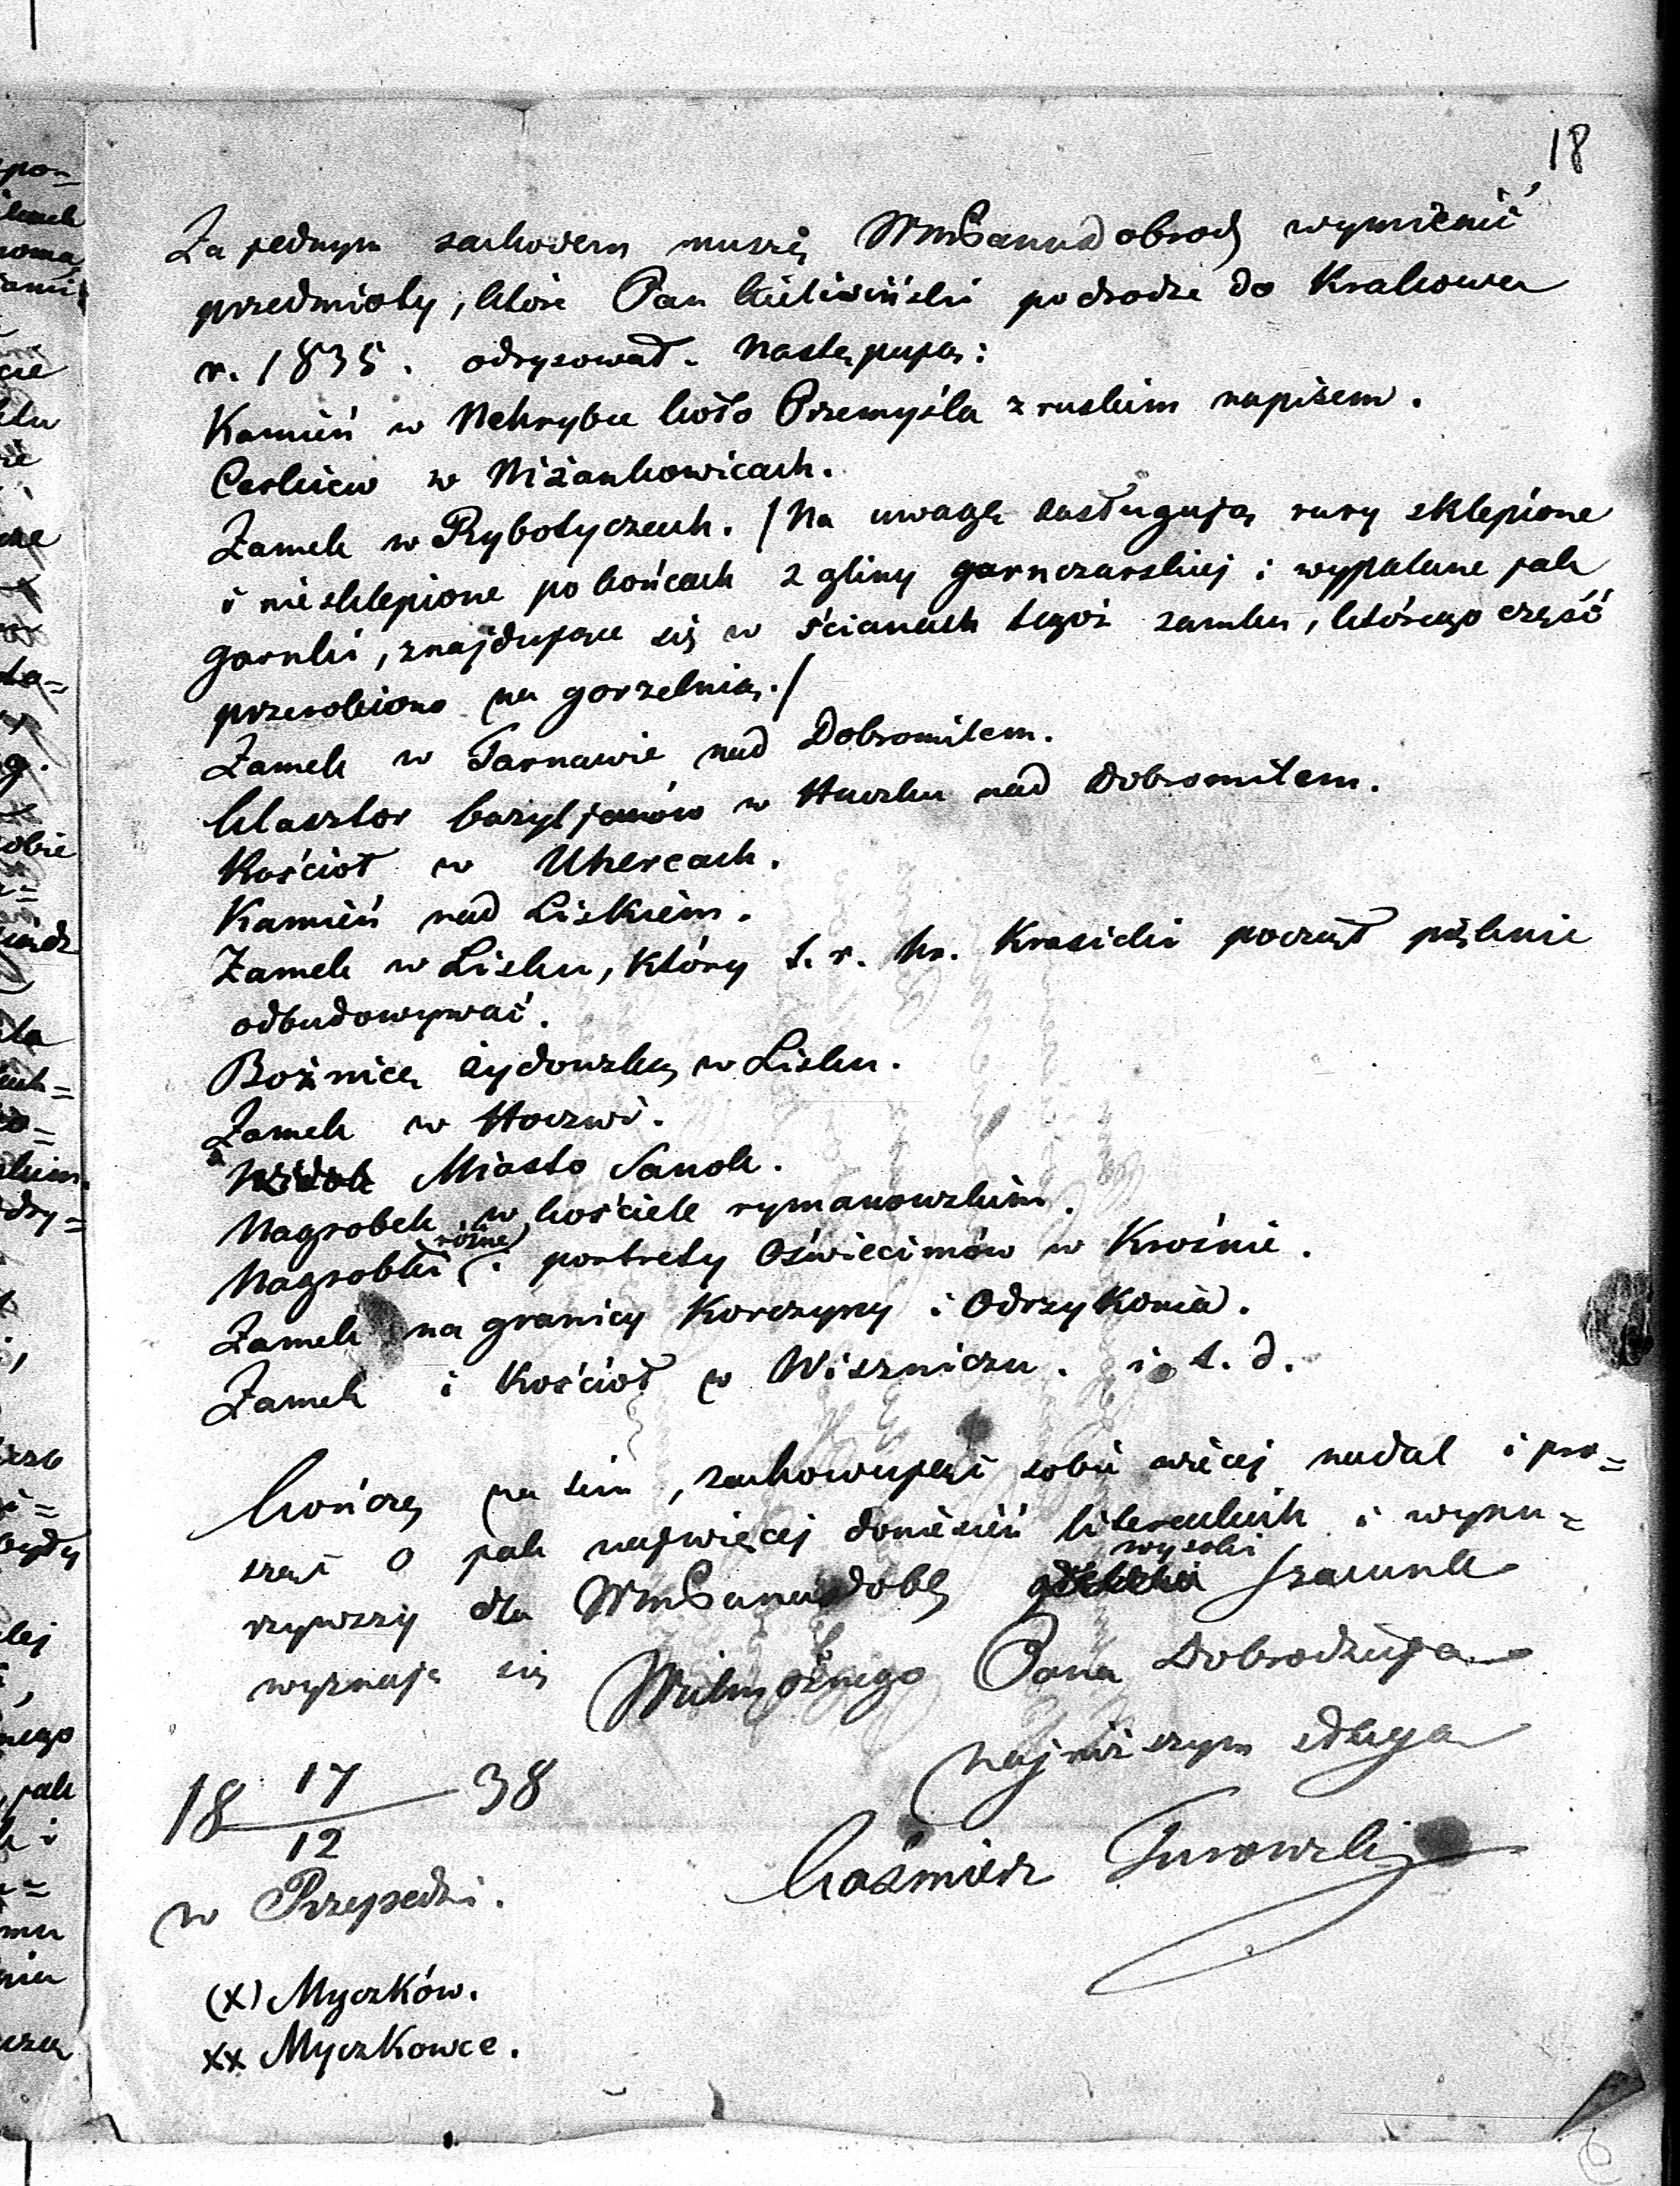 18
Za jednym zachodem muszę WmPanudobrodz wymienić
przedmioty, które Pan Kieliwiński po drodze do Krakowa
r. 1835. odrysował. Następują:
Kamień w Nehrybce koło Przemyśla z ruskim napisem.
Cerkiew w Niżankowicach.
Zamek w Rybotyczach. / Na uwagę zasługują rury sklepione
i niesklepione po końcach z gliny garnczarskiej i wypalane jak
garnki, znajdujące się w ścianach tegoż zamku, którego część
przerobiono na gorzelnią. /
Zamek w Tarnawie nad Dobromilem.
Klasztor bazyljanów w Huczku nad Dobromilem.
Kościoł w Uhercach.
Kamień nad Liskiem.
Zamek w Lisku, który t. r. hr. Krasicki począł pięknie
odbudowywać.
Bożnicę żydowską w Lisku.
Zamek w Hoczwi.
Widok Miasto Sanok.
Nagrobek w kościele rymanowskim.
różne
Nagrobki i portrety Oświecimów w Krośnie.
Zamek na granicy Korczyny i Odrzykonia.
Zamek i Kościoł w Wiszniczu. i t. d.
Kończę na tém, zachowując sobie więcej nadal i pro=
sząc o jak najwięcej doniesień literackich i wynu=
wysoki
rzywszy dla WmPanadobr szacunek
wyznaję się Wielmożnego Pana Dobrodzieja
najniższym sługa
Kaźmierz Turowski
18 17/12 38
w Przepedzi.
(x) Myczków.
xx Myczkowce.